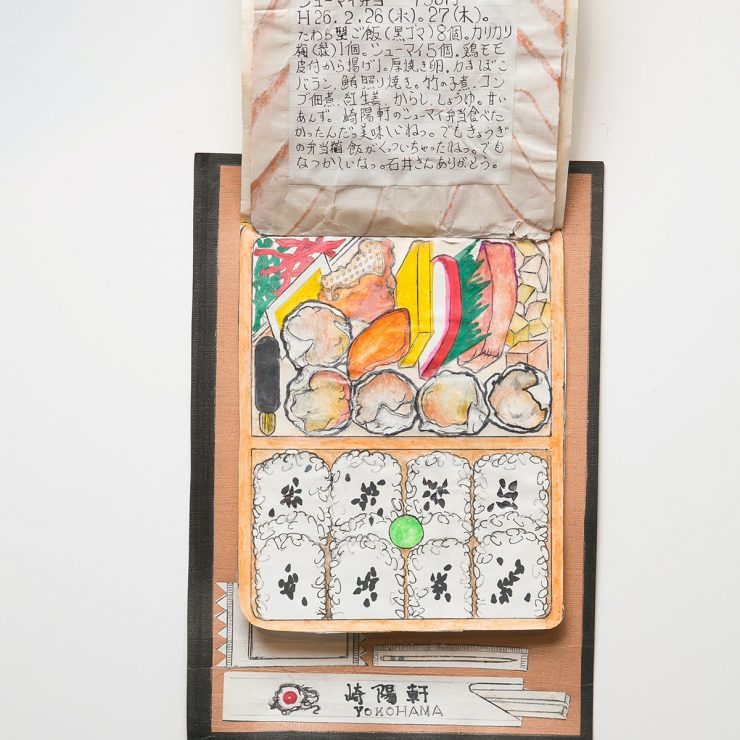 シューマイ弁当 750円
H26.2.26(水)。27(木)。
たわら型ご飯(黒ゴマ)8個。カリカリ
梅(緑)1個。シューマイ5個.鶏モモ
皮付から揚げ」。厚焼き卵.カまぼこ
バラン.鮪照り焼き。竹の子煮.コン
ブ佃煮.紅生姜.からし.しょうゆ。甘い
あんず。崎陽軒のシューマイ弁当食べた
かったんだっ美味しいねっ。でもきょうぎ
の弁当箱飯がくっついちゃったねっ。でも
なつかしいなっ。石井さんありがとう。
崎陽軒
YOKOHAMA